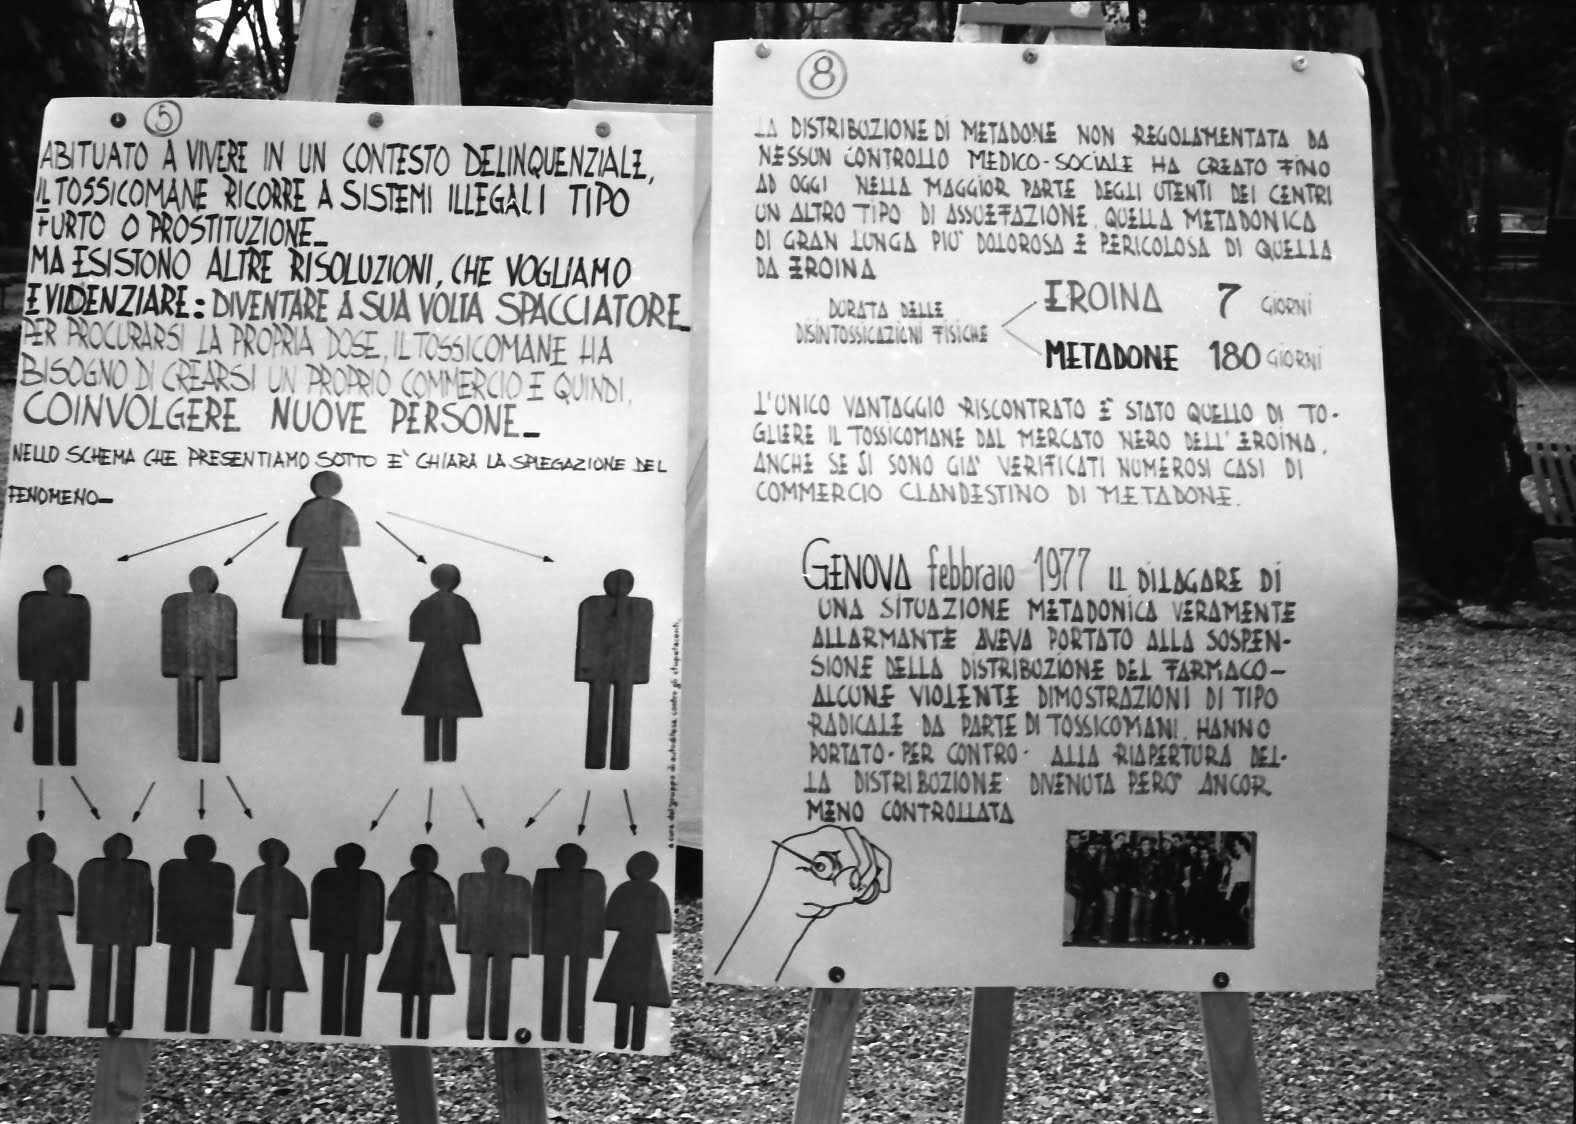 5
ABITUATO A VIVERE IN UN CONTESTO DELINQUENZIALE,
IL TOSSICOMANE RICORRE A SISTEMI ILLEGALI TIPO
FURTO O PROSTITUZIONE_
MA ESISTONO ALTRE RISOLUZIONI, CHE VOGLIAMO
EVIDENZIARE: DIVENTARE A SUA VOLTA SPACCIATORE_
PER PROCURARSI LA PROPRIA DOSE, IL TOSSICOMANE HA
BISOGNO DI CREARSI UN PROPRIO COMMERCIO E QUINDI,
COINVOLGERE NUOVE PERSONE_
NELLO SCHEMA CHE PRESENTIAMO SOTTO E' CHIARA LA SPIEGAZIONE DEL
FENOMENO_
a cura del gruppo di autodifesa contro gli stupefacenti,
8
LA DISTRIBUZIONE DI METADONE NON REGOLAMENTATA DA
NESSUN CONTROLLO MEDICO-SOCIALE HA CREATO FINO
AD OGGI NELLA MAGGIOR PARTE DEGLI UTENTI DEI CENTRI
UN ALTRO TIPO DI ASSUEFAZIONE, QUELLA METADONICA
DI GRAN LUNGA PIU' DOLOROSA E PERICOLOSA DI QUELLA
DA EROINA
DURATA DELLE
DISINTOSSICAZIONI FISICHE
EROINA 7 GIORNI
METADONE 180 GIORNI
L'UNICO VANTAGGIO RISCONTRATO E' STATO QUELLO DI TO-
GLIERE IL TOSSICOMANE DAL MERCATO NERO DELL'EROINA,
ANCHE SE SI SONO GIA' VERIFICATI NUMEROSI CASI DI
COMMERCIO CLANDESTINO DI METADONE.
GENOVA febbraio 1977 IL DILAGARE DI
UNA SITUAZIONE METADONICA VERAMENTE
ALLARMANTE AVEVA PORTATO ALLA SOSPEN-
SIONE DELLA DISTRIBUZIONE DEL FARMACO-
ALCUNE VIOLENTE DIMOSTRAZIONI DI TIPO
RADICALE DA PARTE DI TOSSICOMANI, HANNO
PORTATO-PER CONTRO- ALLA RIAPERTURA DEL-
LA DISTRIBUZIONE DIVENUTA PERO' ANCOR
MENO CONTROLLATA